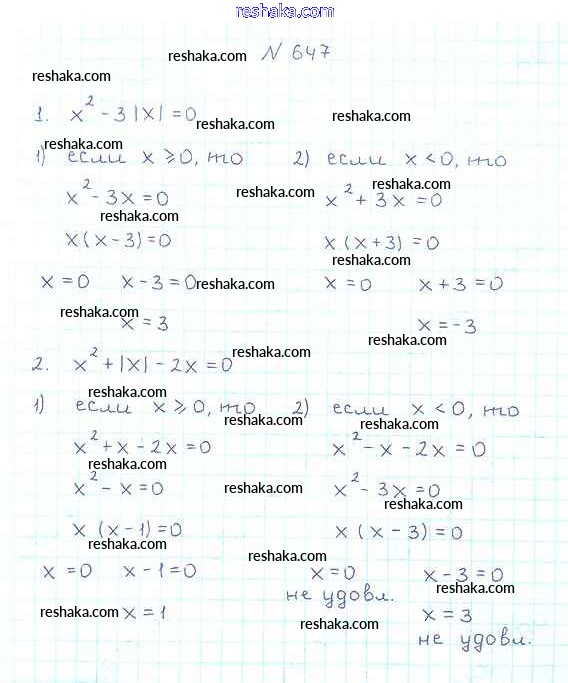 reshaka.com
reshaka.com № 647
reshaka.com
1. x² - 3|x| = 0 reshaka.com reshaka.com
reshaka.com
1) если x ≥ 0, то 2) если x < 0, то
x² - 3x = 0 reshaka.com x² + 3x = 0 reshaka.com
reshaka.com
x(x - 3) = 0 x(x + 3) = 0
reshaka.com
x = 0 x - 3 = 0 reshaka.com x = 0 x + 3 = 0
reshaka.com
x = 3 x = -3
reshaka.com
2. x² + |x| - 2x = 0 reshaka.com
reshaka.com
1) если x ≥ 0, то 2) если x < 0, то
reshaka.com reshaka.com
x² + x - 2x = 0 x² - x - 2x = 0
reshaka.com
x² - x = 0 reshaka.com x² - 3x = 0
reshaka.com
x (x - 1) = 0 x (x - 3) = 0
reshaka.com reshaka.com
x = 0 x - 1 = 0 x = 0 x - 3 = 0
не удовл. reshaka.com
reshaka.com x = 1 x = 3
reshaka.com
не удовл.